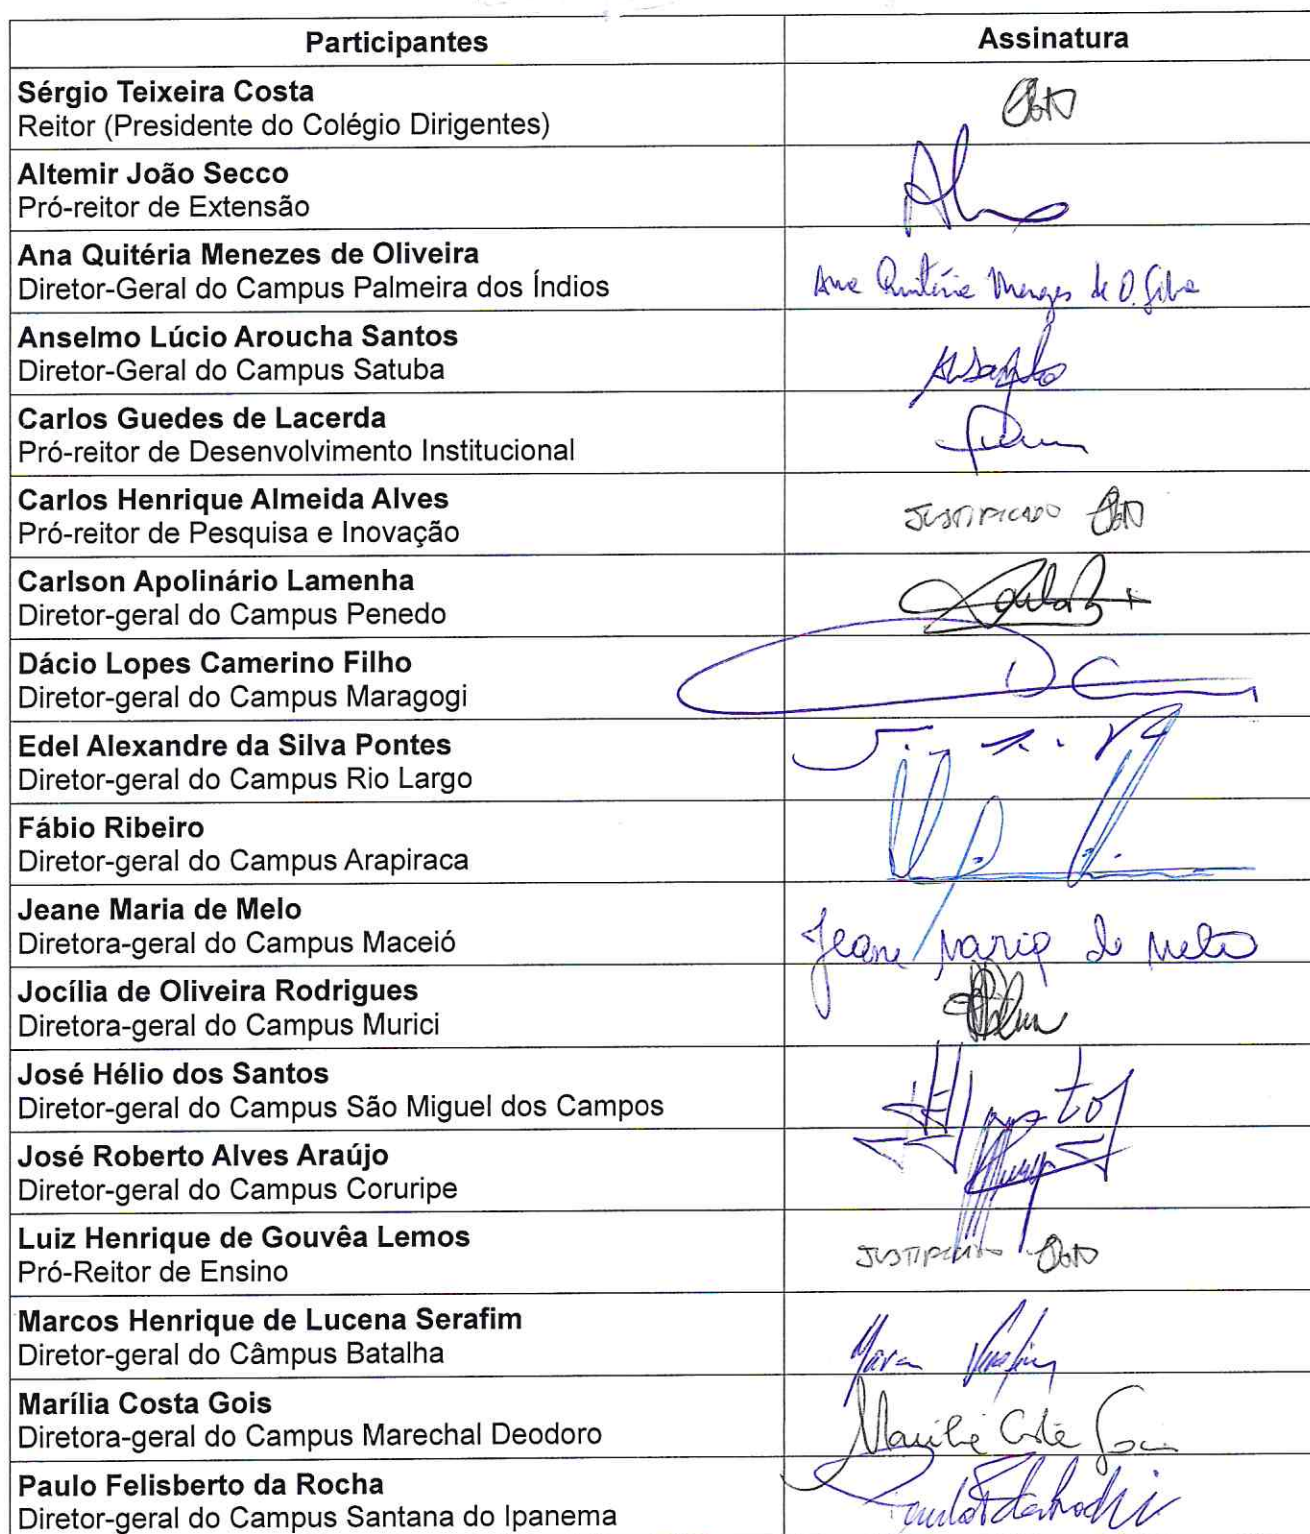 Participantes
Assinatura
Sérgio Teixeira Costa
Reitor (Presidente do Colégio Dirigentes)
Altemir João Secco
Pró-reitor de Extensão
Ana Quitéria Menezes de Oliveira
Diretor-Geral do Campus Palmeira dos Índios
Ana Quitéria Menezes de O. Silva
Anselmo Lúcio Aroucha Santos
Diretor-Geral do Campus Satuba
Carlos Guedes de Lacerda
Pró-reitor de Desenvolvimento Institucional
Carlos Henrique Almeida Alves
Pró-reitor de Pesquisa e Inovação
JUSTIFICADO
Carlson Apolinário Lamenha
Diretor-geral do Campus Penedo
Dácio Lopes Camerino Filho
Diretor-geral do Campus Maragogi
Edel Alexandre da Silva Pontes
Diretor-geral do Campus Rio Largo
Fábio Ribeiro
Diretor-geral do Campus Arapiraca
Jeane Maria de Melo
Diretora-geral do Campus Maceió
Jeane Maria de Melo
Jocília de Oliveira Rodrigues
Diretora-geral do Campus Murici
José Hélio dos Santos
Diretor-geral do Campus São Miguel dos Campos
José Roberto Alves Araújo
Diretor-geral do Campus Coruripe
Luiz Henrique de Gouvêa Lemos
Pró-Reitor de Ensino
JUSTIFICADO
Marcos Henrique de Lucena Serafim
Diretor-geral do Câmpus Batalha
Marília Costa Gois
Diretora-geral do Campus Marechal Deodoro
Marília Costa Gois
Paulo Felisberto da Rocha
Diretor-geral do Campus Santana do Ipanema